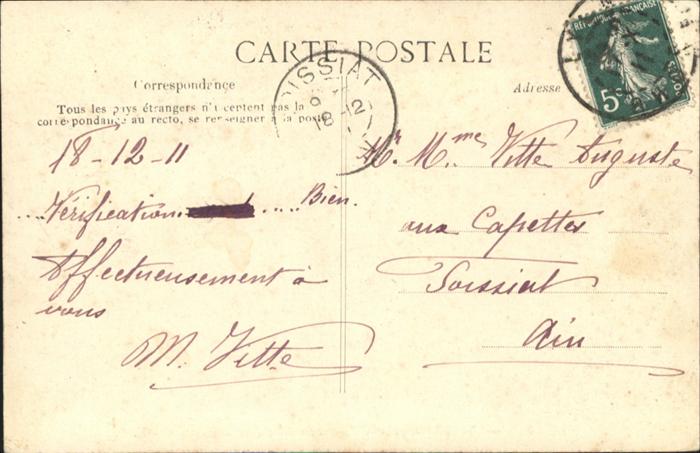 CARTE POSTALE
Correspondance
Tous les pays étrangers n'acceptent pas la
correspondance au recto, se renseigner à la poste
Adresse
RÉPUBLIQUE FRANÇAISE
5c
POSTES
OISSIAT
18-12
18-12-11
...Vérification ..... Bien.
Affectueusement à
vous
M. Vitte
Mr. Mme Vitte Auguste
aux Capettes
Foissiat
Ain